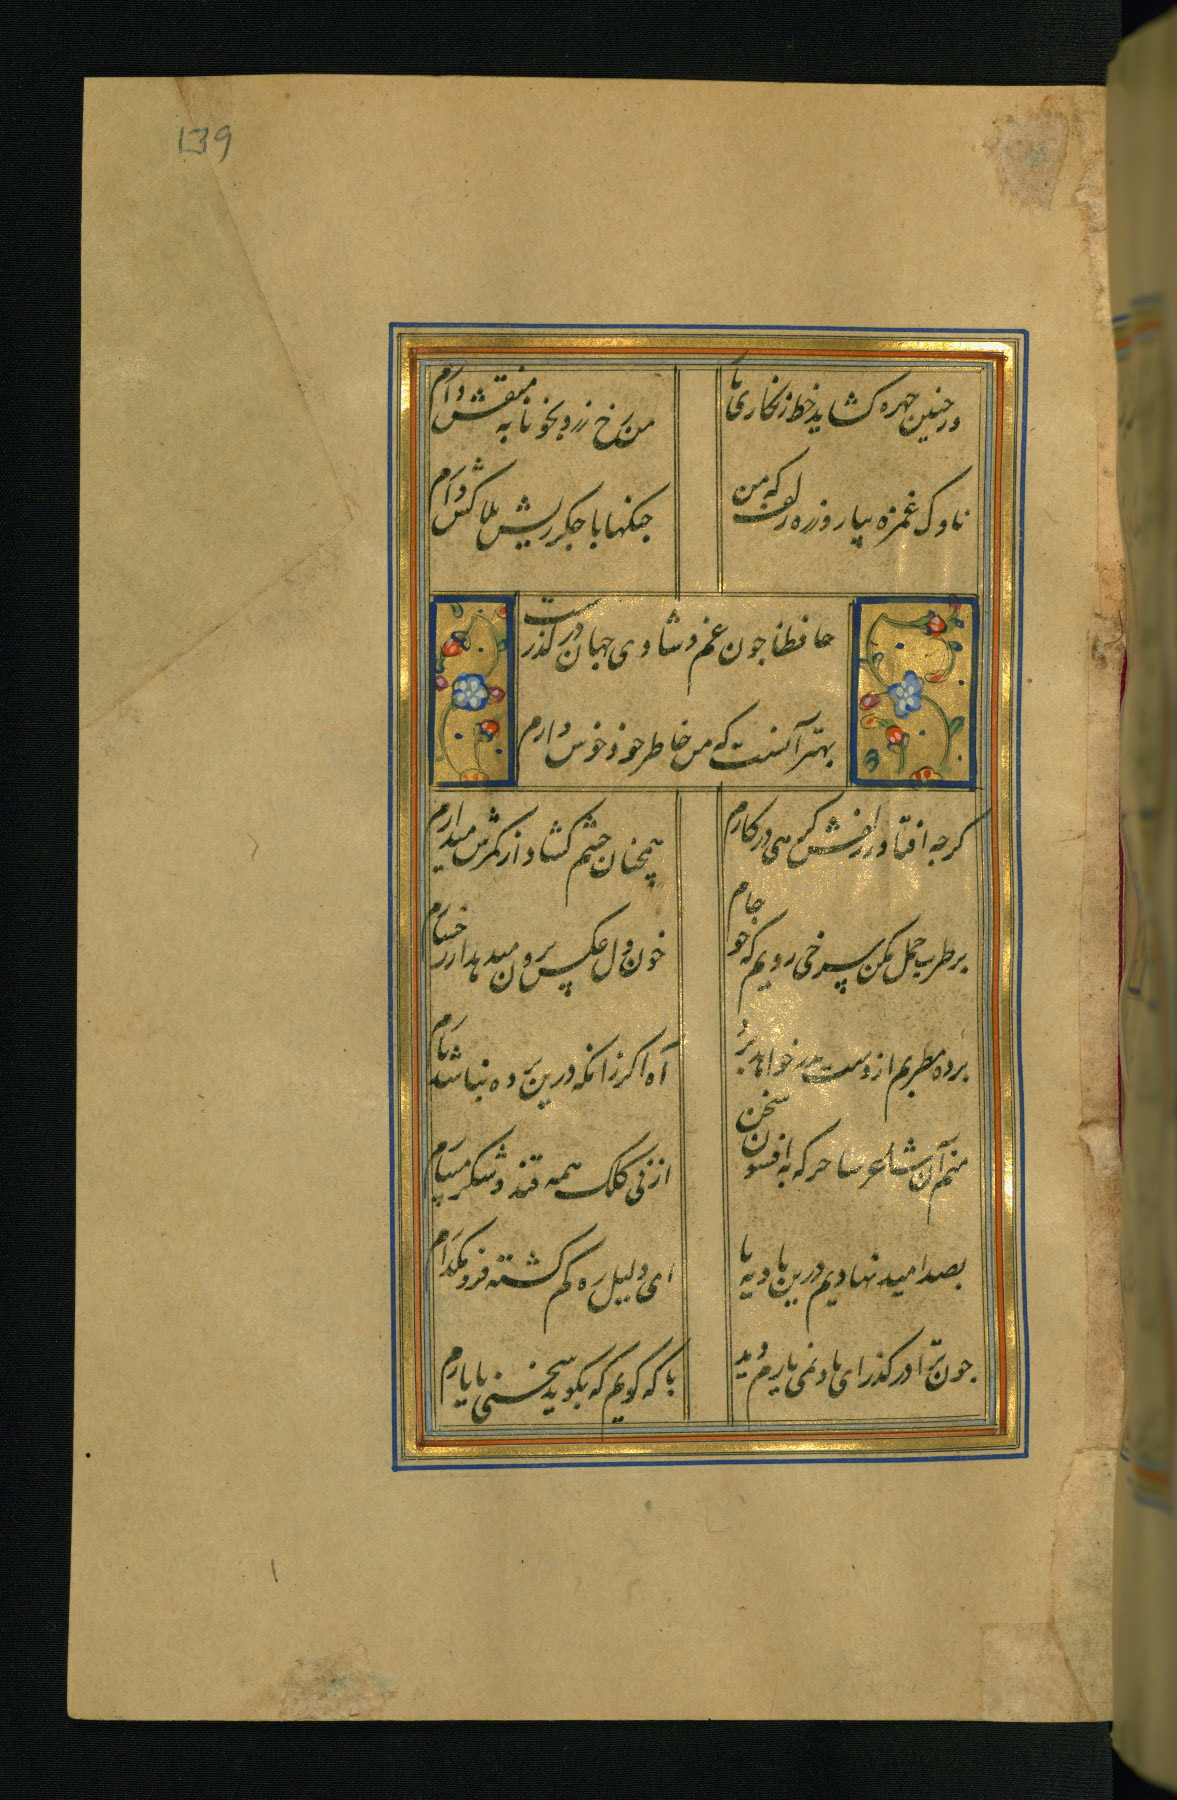 139
ور چنین چهره کشاید خط زنکاری ما
من رخ زرد بخونابه منقش دارم
ناوک غمزه بیار و زره زلف که من
جنکها با جکر ریش بلاکش دارم
حافظا چون غم و شادی جهان در کذرست
بهتر آنست که من خاطر خود خوش دارم
کرچه افتاد ز زلفش کرهی در کارم
همچنان چشم کشاد از کرمش میدارم
بر طرب حمل مکن سرخی رویم که چو جام
خون دل عکس برون میدهد از رخسارم
پرده مطربم از دست خواهد برد
آه اکر زانکه درین پرده نباشد بارم
منم آن شاعر ساحر که به افسون سخن
از نی کلک همه قند و شکر میبارم
بصد امید نهادیم درین بادیه پا
ای دلیل ره کم کشته فرو مکذارم
چون ترا در کذر ای باد نمی یارم دید
با که کویم که بکوید سخنی با یارم